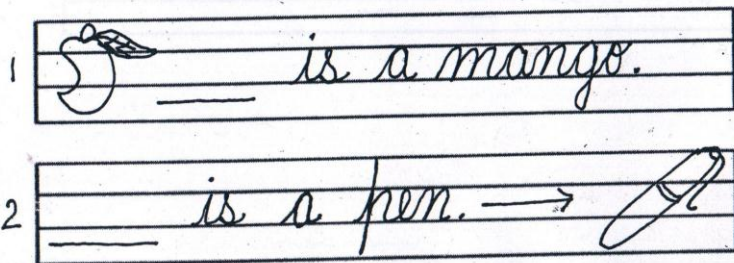 1 ____ is a mango.
2 ____ is a pen. →